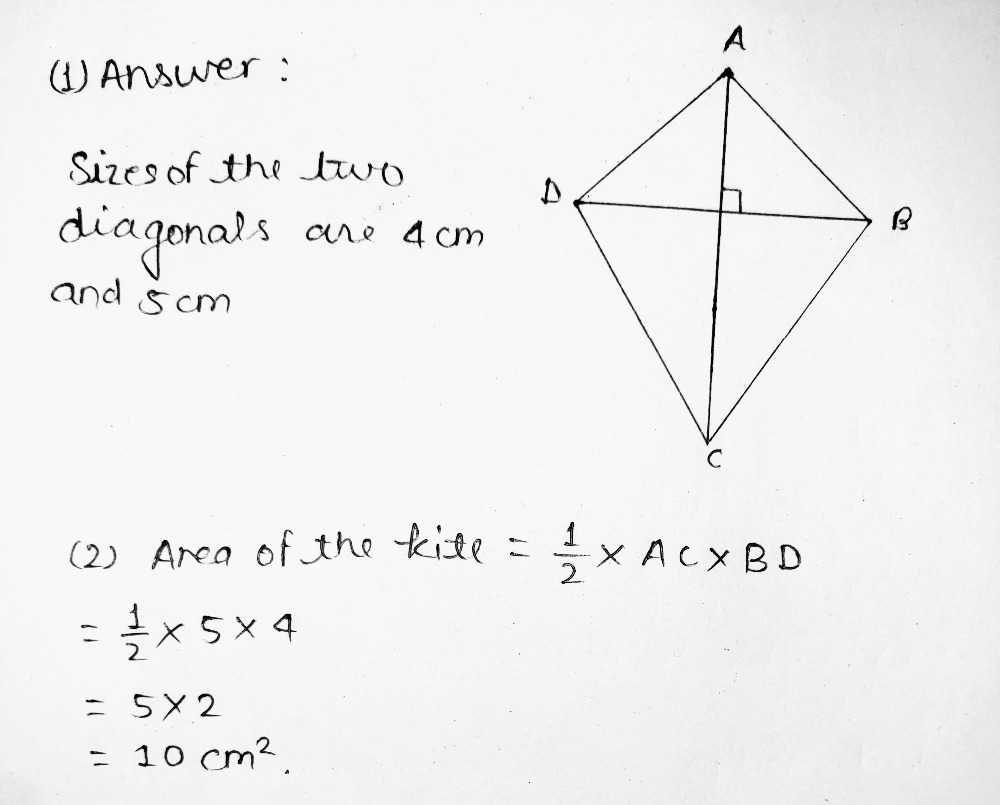 (1) Answer :
Sizes of the two
diagonals are 4 cm
and 5 cm
A
D
B
C
(2) Area of the kite = 1/2 × AC × BD
= 1/2 × 5 × 4
= 5 × 2
= 10 cm².